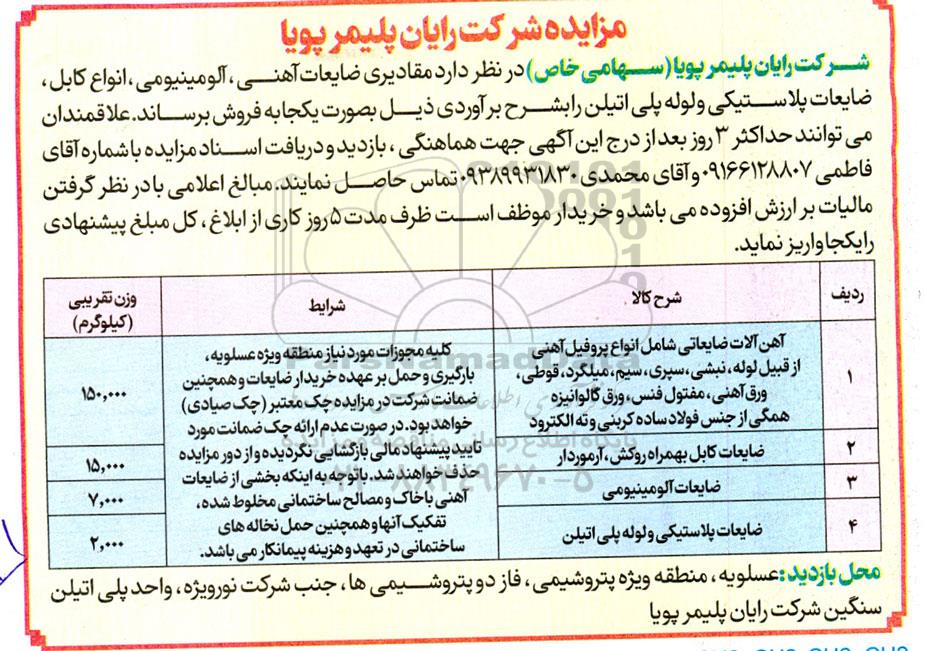 مزایده شرکت رایان پلیمر پویا
شرکت رایان پلیمر پویا (سهامی خاص) در نظر دارد مقادیری ضایعات آهنی، آلومینیومی، انواع کابل،
ضایعات پلاستیکی و لوله پلی اتیلن را بشرح برآوردی ذیل بصورت یکجا به فروش برساند. علاقمندان
می توانند حداکثر ۳ روز بعد از درج این آگهی جهت هماهنگی، بازدید و دریافت اسناد مزایده با شماره آقای
فاطمی ۰۹۱۶۶۱۲۸۸۰۷ و آقای محمدی ۰۹۳۸۹۹۳۱۸۳۰ تماس حاصل نمایند. مبالغ اعلامی با در نظر گرفتن
مالیات بر ارزش افزوده می باشد و خریدار موظف است ظرف مدت ۵ روز کاری از ابلاغ، کل مبلغ پیشنهادی
را یکجا واریز نماید.
ردیف شرح کالا شرایط وزن تقریبی (کیلوگرم)
۱
آهن آلات ضایعاتی شامل انواع پروفیل آهنی
از قبیل لوله، نبشی، سپری، سیم، میلگرد، قوطی،
ورق آهنی، مفتول فنس، ورق گالوانیزه
همگی از جنس فولاد ساده کربنی و ته الکترود
۱۵۰,۰۰۰
۲ ضایعات کابل بهمراه روکش، آرموردار ۱۵,۰۰۰
۳ ضایعات آلومینیومی ۷,۰۰۰
۴ ضایعات پلاستیکی و لوله پلی اتیلن ۲,۰۰۰
کلیه مجوزات مورد نیاز منطقه ویژه عسلویه،
بارگیری و حمل بر عهده خریدار ضایعات و همچنین
ضمانت شرکت در مزایده چک معتبر (چک صیادی)
خواهد بود. در صورت عدم ارائه چک ضمانت مورد
تایید پیشنهاد مالی بازگشایی نگردیده و از دور مزایده
حذف خواهند شد. باتوجه به اینکه بخشی از ضایعات
آهنی با خاک و مصالح ساختمانی مخلوط شده،
تفکیک آنها و همچنین حمل نخاله های
ساختمانی در تعهد و هزینه پیمانکار می باشد.
محل بازدید: عسلویه، منطقه ویژه پتروشیمی، فاز دو پتروشیمی ها، جنب شرکت نورویژه، واحد پلی اتیلن
سنگین شرکت رایان پلیمر پویا